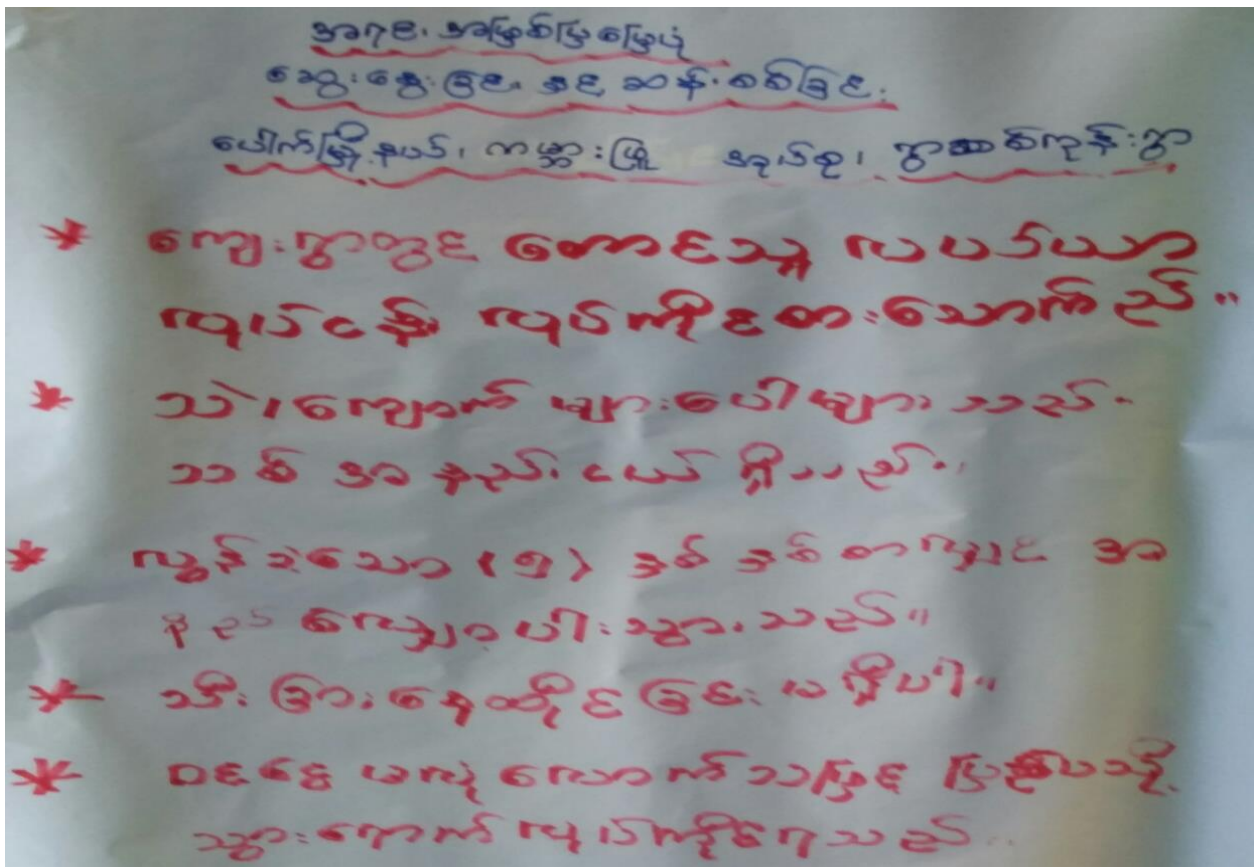 အရင်းအမြစ်ပြမြေပုံ
ဆွေးနွေးခြင်း နှင့် ဆန်းစစ်ခြင်း
ပေါက်မြို့နယ်၊ ကမ္ဘားဖြူ အုပ်စု၊ ရွာဆစ်ကုန်းရွာ
* ကျေးရွာတွင် တောင်သူ လယ်ယာ
လုပ်ငန်း လုပ်ကိုင်စားသောက်သည်။
* သဲ၊ ကျောက် များပေါများသည်။
သစ် အနည်းငယ် ရှိသည်။
* လွန်ခဲ့သော (၅) နှစ် နှစ်တာလျှင် အ
နည် လျော့ပါးသွားသည်။
* သီးခြားနေထိုင်ခြင်း မရှိပါ။
* ဝင်ငွေ မလုံလောက်သဖြင့် ပြည်ပသို့
သွားရောက် လုပ်ကိုင်ရသည်။